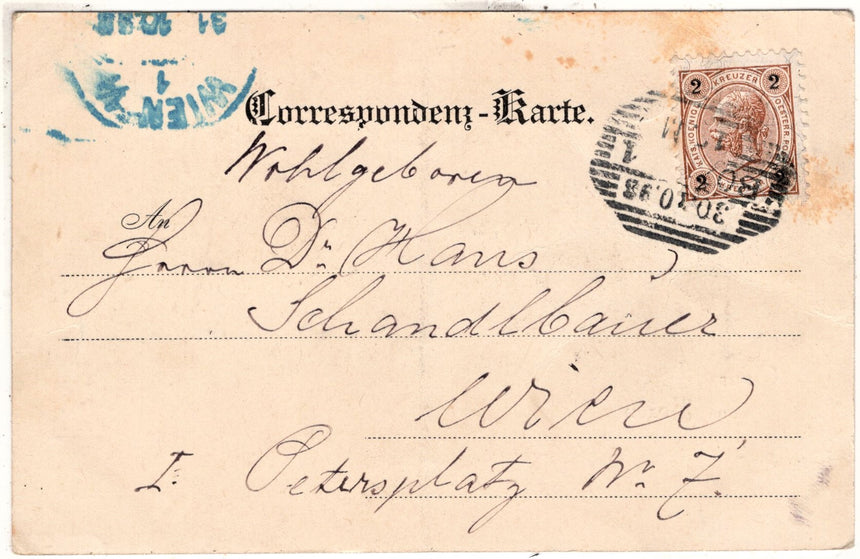 WIEN
1
31.10.98
Correspondenz-Karte.
2 KREUZER 2
KAIS. KOENIGL. OESTERR. POST
2 2
1
30.10.98
Wohlgeboren
An
Herrn Dr. Hans
Schandlbauer
Wien
I. Petersplatz Nr. 7.